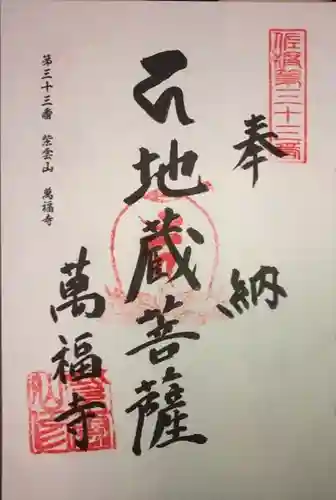 第三十三番
奉納
地蔵菩薩
萬福寺
第三十三番 紫雲山 萬福寺